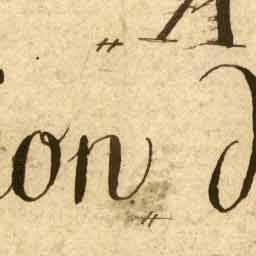 „ A
ion d
„